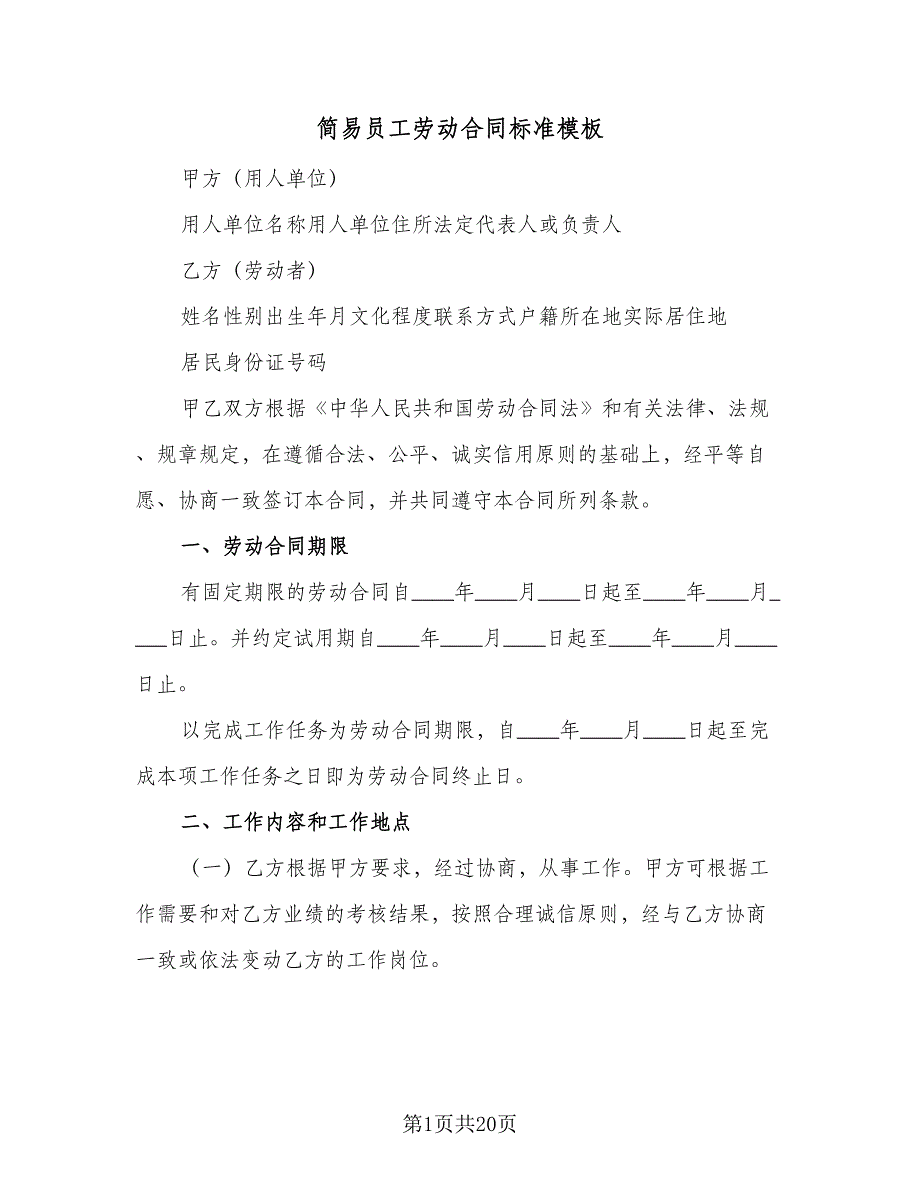 简易员工劳动合同标准模板
甲方（用人单位）
用人单位名称用人单位住所法定代表人或负责人
乙方（劳动者）
姓名性别出生年月文化程度联系方式户籍所在地实际居住地
居民身份证号码
甲乙双方根据《中华人民共和国劳动合同法》和有关法律、法规
、规章规定，在遵循合法、公平、诚实信用原则的基础上，经平等自
愿、协商一致签订本合同，并共同遵守本合同所列条款。
一、劳动合同期限
有固定期限的劳动合同自____年____月____日起至____年____月_
___日止。并约定试用期自____年____月____日起至____年____月____
日止。
以完成工作任务为劳动合同期限，自____年____月____日起至完
成本项工作任务之日即为劳动合同终止日。
二、工作内容和工作地点
（一）乙方根据甲方要求，经过协商，从事工作。甲方可根据工
作需要和对乙方业绩的考核结果，按照合理诚信原则，经与乙方协商
一致或依法变动乙方的工作岗位。
第1页共20页